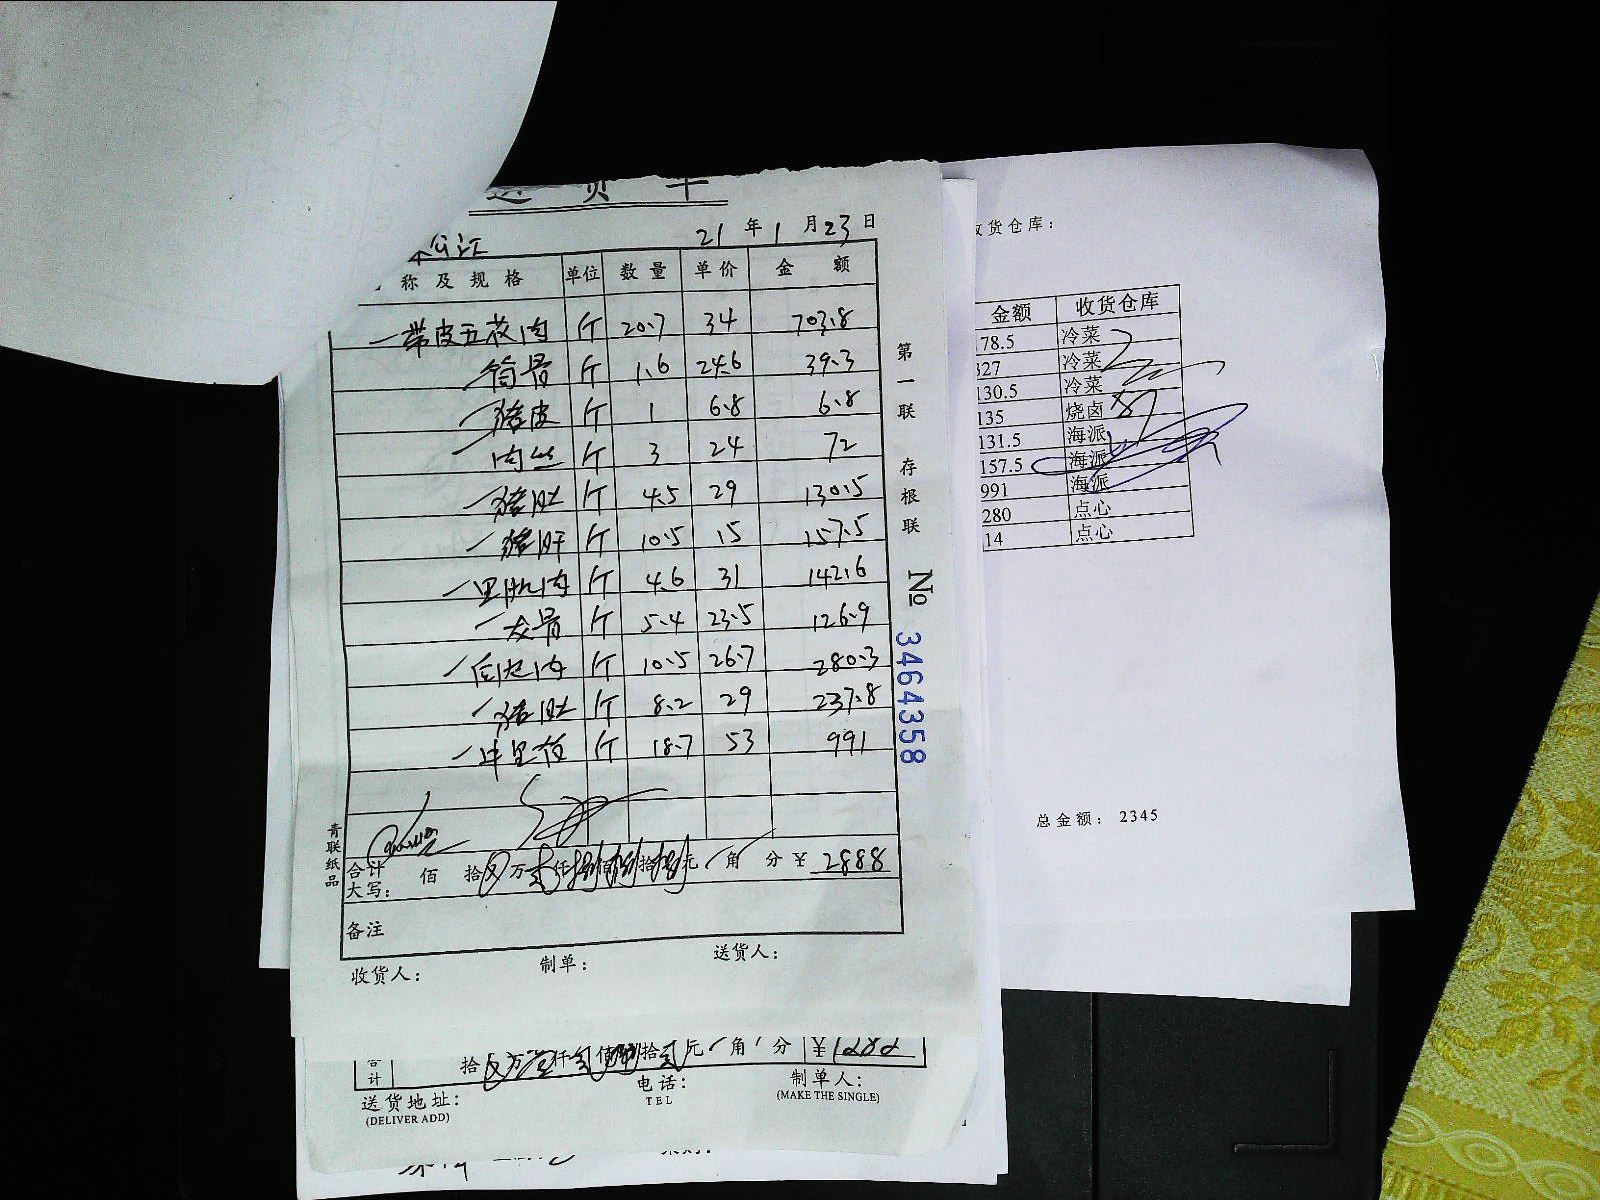 送货单
21年1月23日
称及规格 单位 数量 单价 金额
带皮五花肉 斤 20.7 34 703.8
筒骨 斤 1.6 24.6 39.3
猪皮 斤 1 6.8 6.8
肉丝 斤 3 24 72
猪肚 斤 4.5 29 130.5
猪肝 斤 10.5 15 157.5
里肌肉 斤 4.6 31 142.6
龙骨 斤 5.4 23.5 126.9
斤 10.5 26.7 280.3
猪肚 斤 8.2 29 237.8
斤 18.7 53 991
合计大写: 佰 拾 万 仟 佰 拾 元 角 分 ¥ 2888
备注
收货人: 制单: 送货人:
青联纸品
第一联 存根联
№ 3464358
合计 拾 万 仟 佰 拾 元 角 分 ¥ 1282
送货地址: 电话: 制单人:
(DELIVER ADD) TEL (MAKE THE SINGLE)
收货仓库:
金额 收货仓库
178.5 冷菜
327 冷菜
130.5 冷菜
135 烧卤
131.5 海派
157.5 海派
991 海派
280 点心
14 点心
总金额: 2345